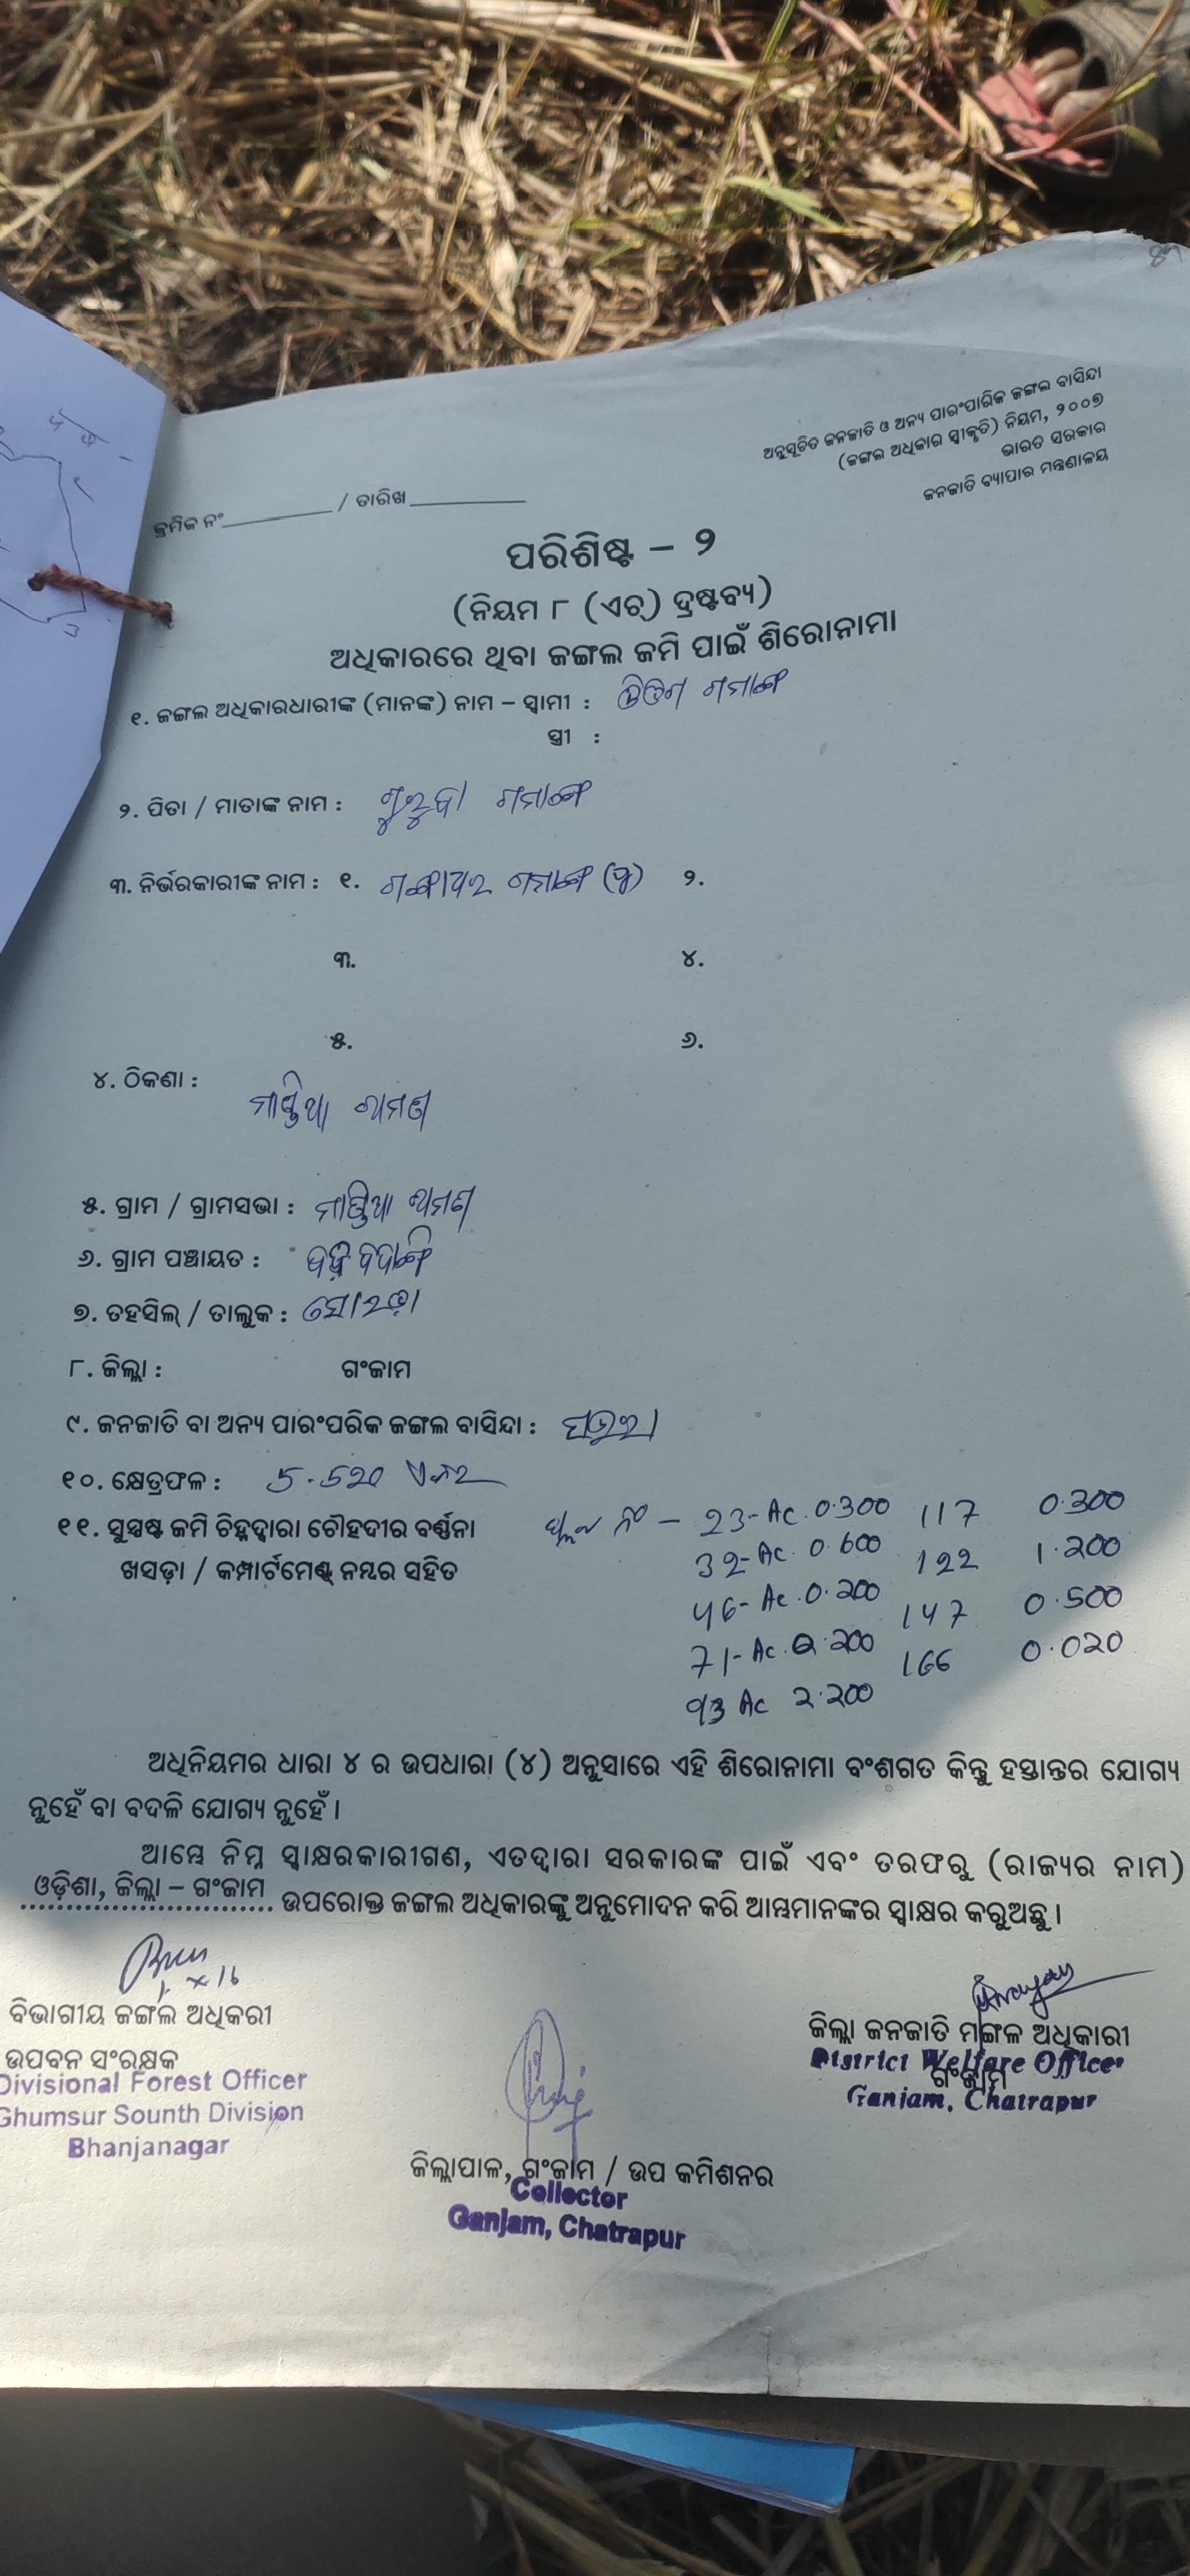 ଅନୁସୂଚିତ ଜନଜାତି ଓ ଅନ୍ୟ ପାରଂପାରିକ ଜଙ୍ଗଲ ବାସିନ୍ଦା
(ଜଙ୍ଗଲ ଅଧିକାର ସ୍ୱୀକୃତି) ନିୟମ, ୨୦୦୭
ଭାରତ ସରକାର
ଜନଜାତି ବ୍ୟାପାର ମନ୍ତ୍ରଣାଳୟ
କ୍ରମିକ ନଂ / ତାରିଖ
ପରିଶିଷ୍ଟ – ୨
(ନିୟମ ୮ (ଏଚ୍) ଦ୍ରଷ୍ଟବ୍ୟ)
ଅଧିକାରରେ ଥିବା ଜଙ୍ଗଲ ଜମି ପାଇଁ ଶିରୋନାମା
୧. ଜଙ୍ଗଲ ଅଧିକାରଧାରୀଙ୍କ (ମାନଙ୍କ) ନାମ – ସ୍ୱାମୀ : ଗମାଙ୍ଗ
ସ୍ତ୍ରୀ :
୨. ପିତା / ମାତାଙ୍କ ନାମ : ଗମାଙ୍ଗ
୩. ନିର୍ଭରକାରୀଙ୍କ ନାମ : ୧. ଗମାଙ୍ଗ ୨.
୩. ୪.
୫. ୬.
୪. ଠିକଣା :
୫. ଗ୍ରାମ / ଗ୍ରାମସଭା :
୬. ଗ୍ରାମ ପଞ୍ଚାୟତ :
୭. ତହସିଲ୍ / ତାଲୁକ : ସୋରଡ଼ା
୮. ଜିଲ୍ଲା : ଗଂଜାମ
୯. ଜନଜାତି ବା ଅନ୍ୟ ପାରଂପରିକ ଜଙ୍ଗଲ ବାସିନ୍ଦା :
୧୦. କ୍ଷେତ୍ରଫଳ : 5.520 ଏକର
୧୧. ସୁସ୍ପଷ୍ଟ ଜମି ଚିହ୍ନଦ୍ୱାରା ଚୌହଦୀର ବର୍ଣ୍ଣନା ପ୍ଲଟ ନଂ – 23-Ac 0.300 117 0.300
ଖସଡ଼ା / କମ୍ପାର୍ଟମେଣ୍ଟ୍ ନମ୍ବର ସହିତ 32-Ac. 0.600 122 1.200
46-Ac.0.200 147 0.500
71-Ac.0.200 166 0.020
93 Ac 2.200
ଅଧିନିୟମର ଧାରା ୪ ର ଉପଧାରା (୪) ଅନୁସାରେ ଏହି ଶିରୋନାମା ବଂଶଗତ କିନ୍ତୁ ହସ୍ତାନ୍ତର ଯୋଗ୍ୟ
ନୁହେଁ ବା ବଦଳି ଯୋଗ୍ୟ ନୁହେଁ ।
ଆମ୍ଭେ ନିମ୍ନ ସ୍ୱାକ୍ଷରକାରୀଗଣ, ଏତଦ୍ୱାରା ସରକାରଙ୍କ ପାଇଁ ଏବଂ ତରଫରୁ (ରାଜ୍ୟର ନାମ)
ଓଡ଼ିଶା, ଜିଲ୍ଲା – ଗଂଜାମ ଉପରୋକ୍ତ ଜଙ୍ଗଲ ଅଧିକାରଙ୍କୁ ଅନୁମୋଦନ କରି ଆମ୍ଭମାନଙ୍କର ସ୍ୱାକ୍ଷର କରୁଅଛୁ ।
ବିଭାଗୀୟ ଜଙ୍ଗଲ ଅଧିକରୀ
ଉପବନ ସଂରକ୍ଷକ
Divisional Forest Officer
Ghumsur Sounth Division
Bhanjanagar
ଜିଲ୍ଲା ଜନଜାତି ମଙ୍ଗଳ ଅଧିକାରୀ
ଗଂଜାମ
District Welfare Officer
Ganjam, Chatrapur
ଜିଲ୍ଲାପାଳ, ଗଂଜାମ / ଉପ କମିଶନର
Collector
Ganjam, Chatrapur